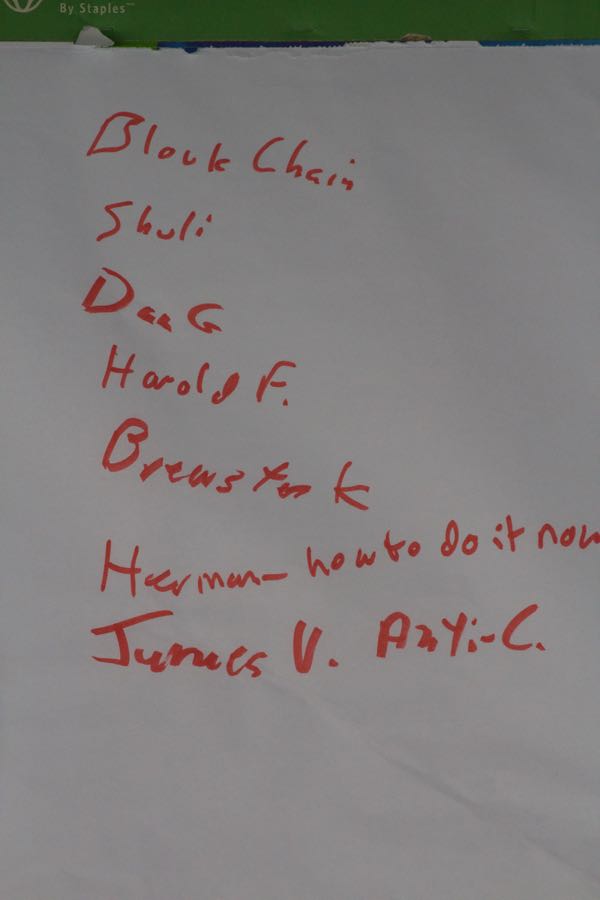 By Staples™
Blouk Chain
Shuli
Dan G
Harold F.
Brewster K
Herman - how to do it now
James V. Anti-C.